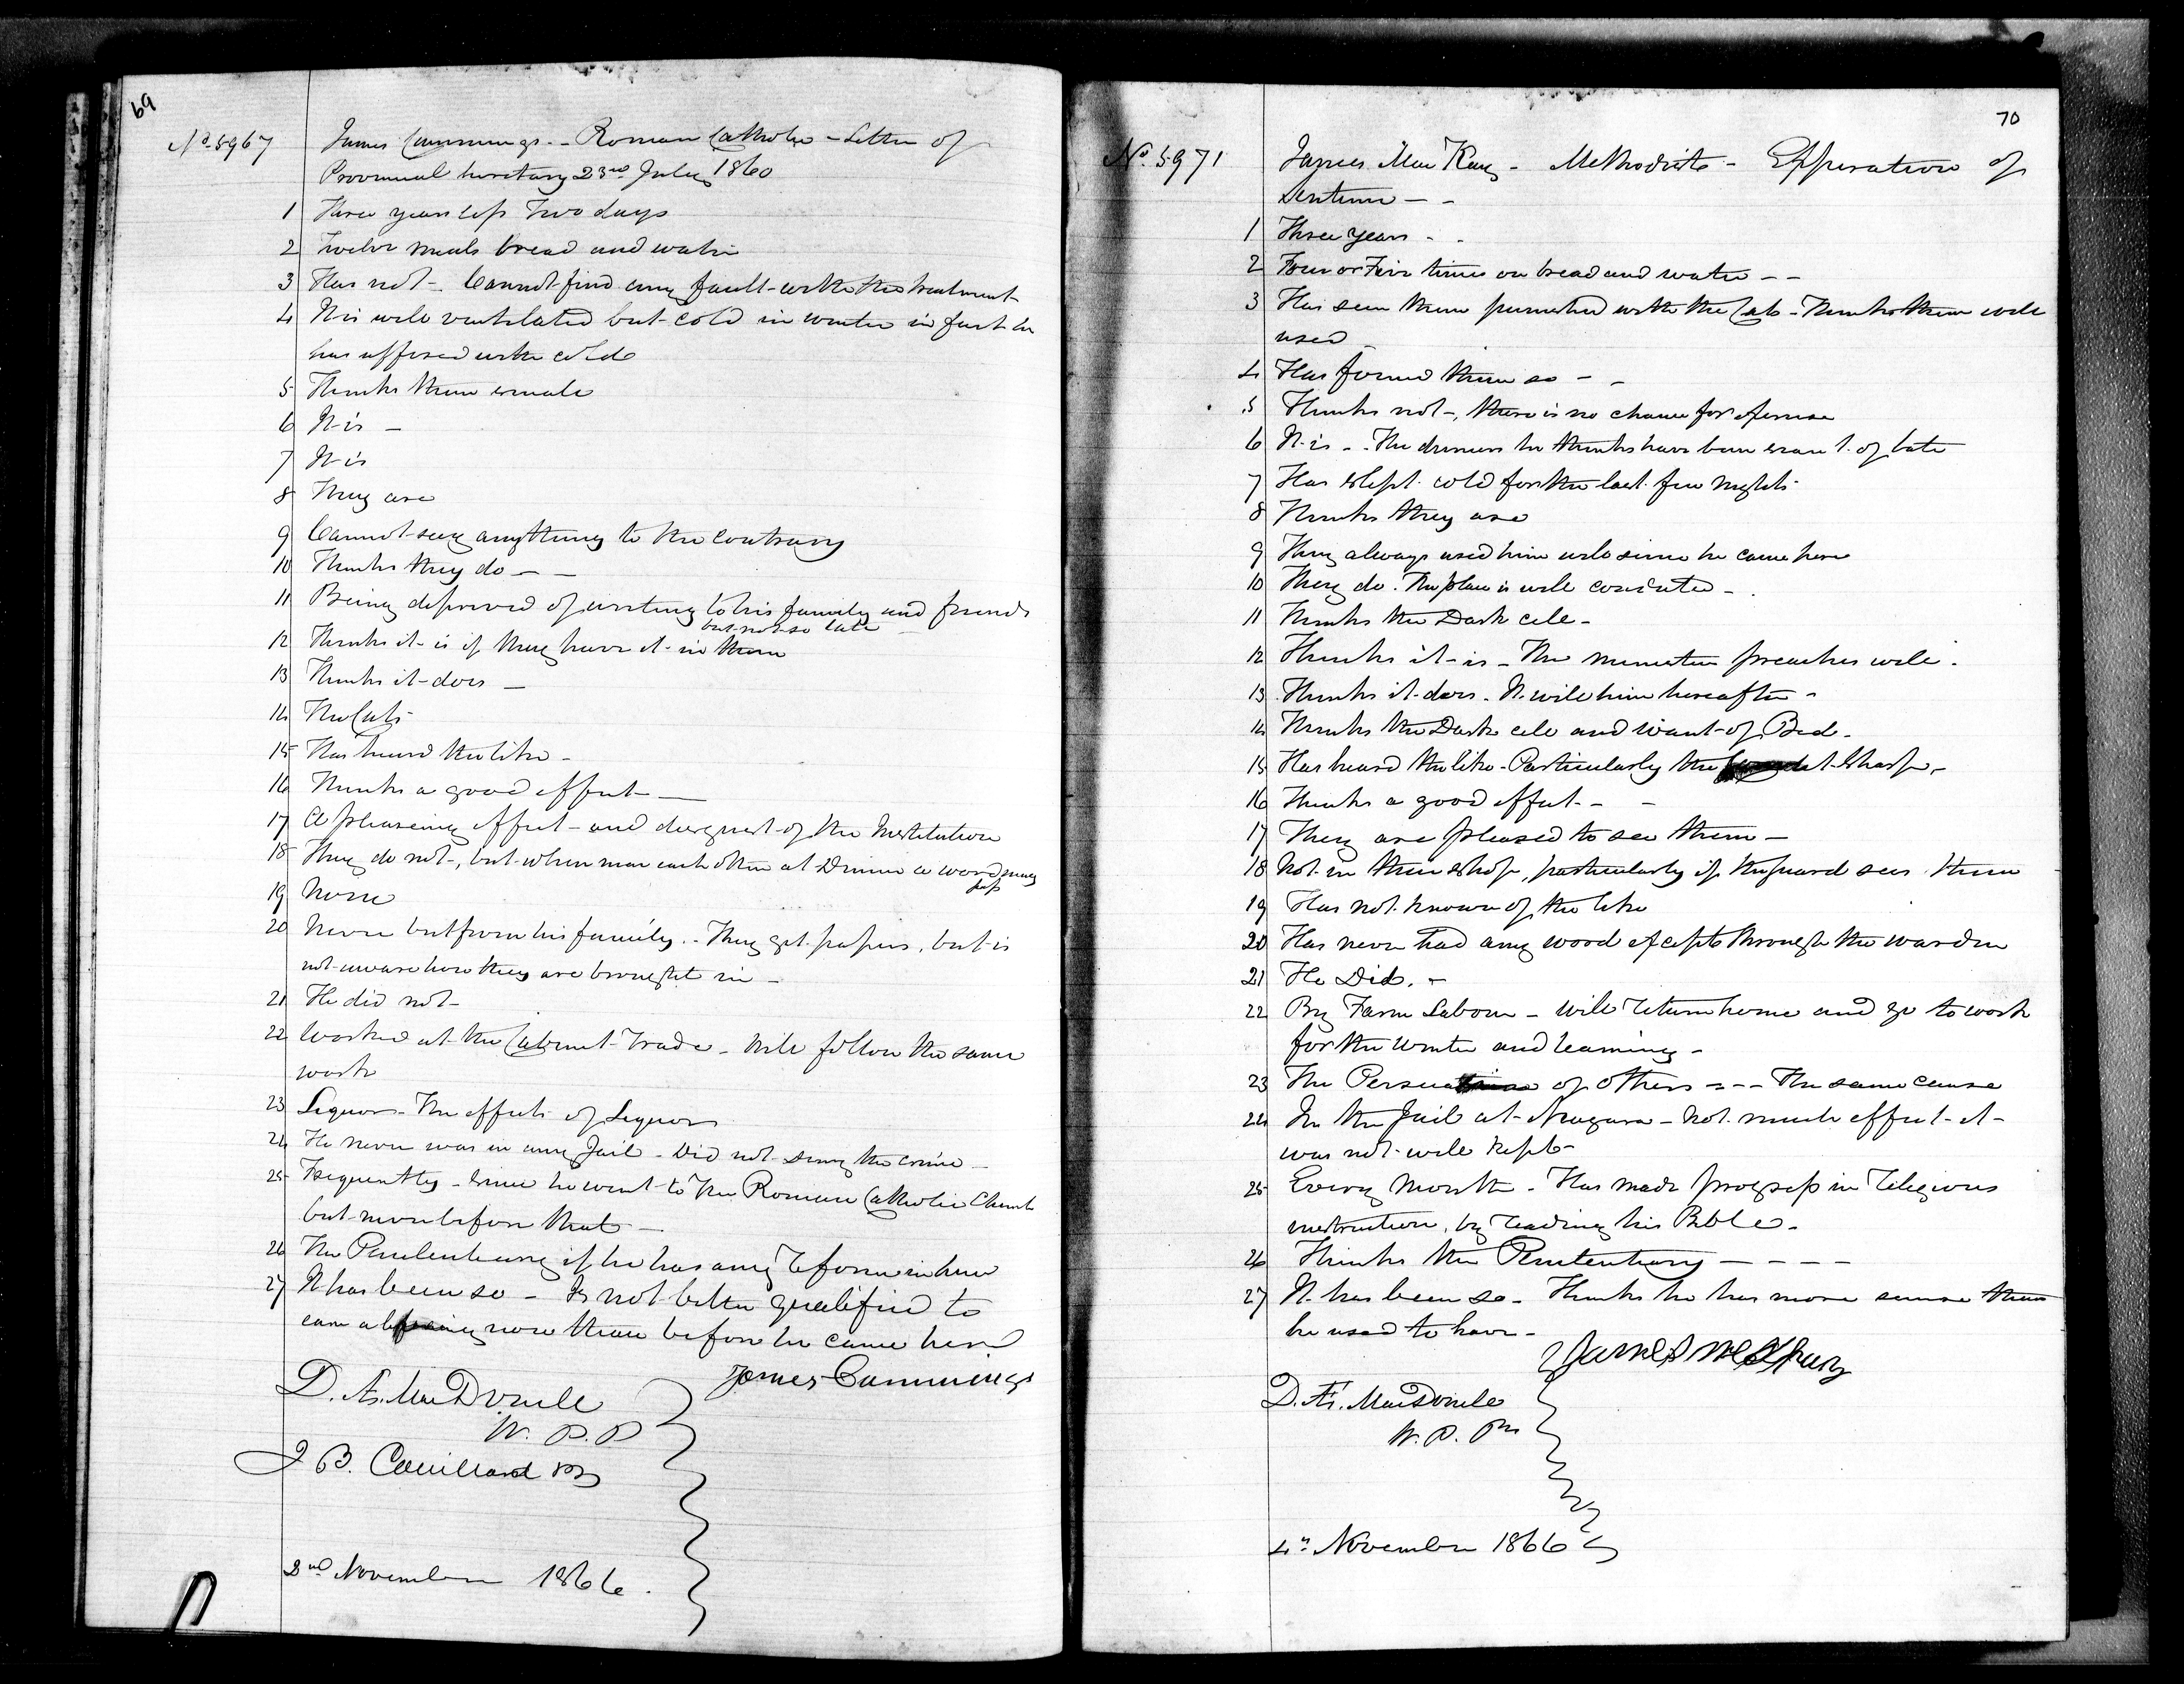 69
No. 5967 James Cummings - Roman Catholic - Letter of
Provincial Secretary 23rd July 1860
1 Three years less Two days
2 Twelve meals bread and water
3 Has not - Cannot find any fault with the treatment
4 It is well ventilated but cold in winter in fact he
has suffered with cold
5 Thinks them small
6 It is -
7 It is
8 They are
9 Cannot say anything to the contrary
10 Thinks they do - -
11 Being deprived of writing to his family and friends
but not so late
12 Thinks it is if they have it in them
13 Thinks it does -
14 The Cats
15 Has heard the like -
16 Thinks a good effect -
17 A pleasing effect - and disgust of the Institution
18 They do not, but when near each other at Dinner a word may
pass
19 None
20 Never but from his family. - They get papers, but is
not aware how they are brought in -
21 He did not -
22 Worked at the Cabinet Trade - Will follow the same
work
23 Liquor - The effects of Liquor
24 He never was in any Jail - Did not deny the crime -
25 Frequently - since he went to the Roman Catholic Church
but never before that -
26 The Penitentiary if he has any reform in him
27 It has been so - Is not better qualified to
earn a living now than before he came here
James Cummings
D. Æ. MacDonell
W. P. P
J B. Couillard
2nd November 1866.
70
No. 5971 James MacKay - Methodist - Expiration of
Sentence - -
1 Three years - -
2 Four or Five times on bread and water - -
3 Has seen them punished with the Cats - Thinks them well
used
4 Has found them so - -
5 Thinks not -, there is no chance for
6 It is - - The dinners he thinks have been scant of late
7 Has slept cold for the last few nights
8 Thinks they are
9 They always used him well since he came here
10 They do. The place is well conducted -
11 Thinks the Dark cell -
12 Thinks it is - The minister preaches well -
13 Thinks it does - It will him hereafter -
14 Thinks the Dark cell and want of Bed -
15 Has heard the like - Particularly the Shop -
16 Thinks a good effect - -
17 They are pleased to see them -
18 Not in their shop, particularly if the guard sees them
19 Has not known of the like
20 Has never had any word except through the warden
21 He Did. -
22 By Farm Labour - Will return home and go to work
for the winter and learning -
23 The Persuasion of others - - - The same cause
24 In the Jail at Niagara - Not much effect - it
was not well kept -
25 Every Month - Has made progress in religious
instruction, by reading his Bible -
26 Thinks the Penitentiary - - - -
27 It has been so - Thinks he has more sense than
he used to have -
James McKay
D. Æ. MacDonell
W. P. Pry
4th November 1866